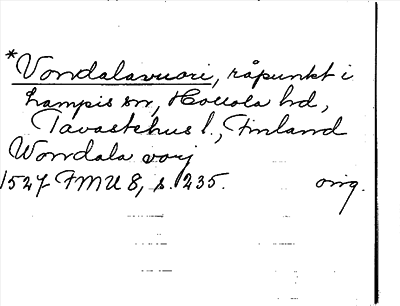 *Vondalavuori, råpunkt i
Lampis sn, Hollola hd,
Tavastehus l., Finland
Wondala vorj
1527 FMU 8, s. 235. orig.